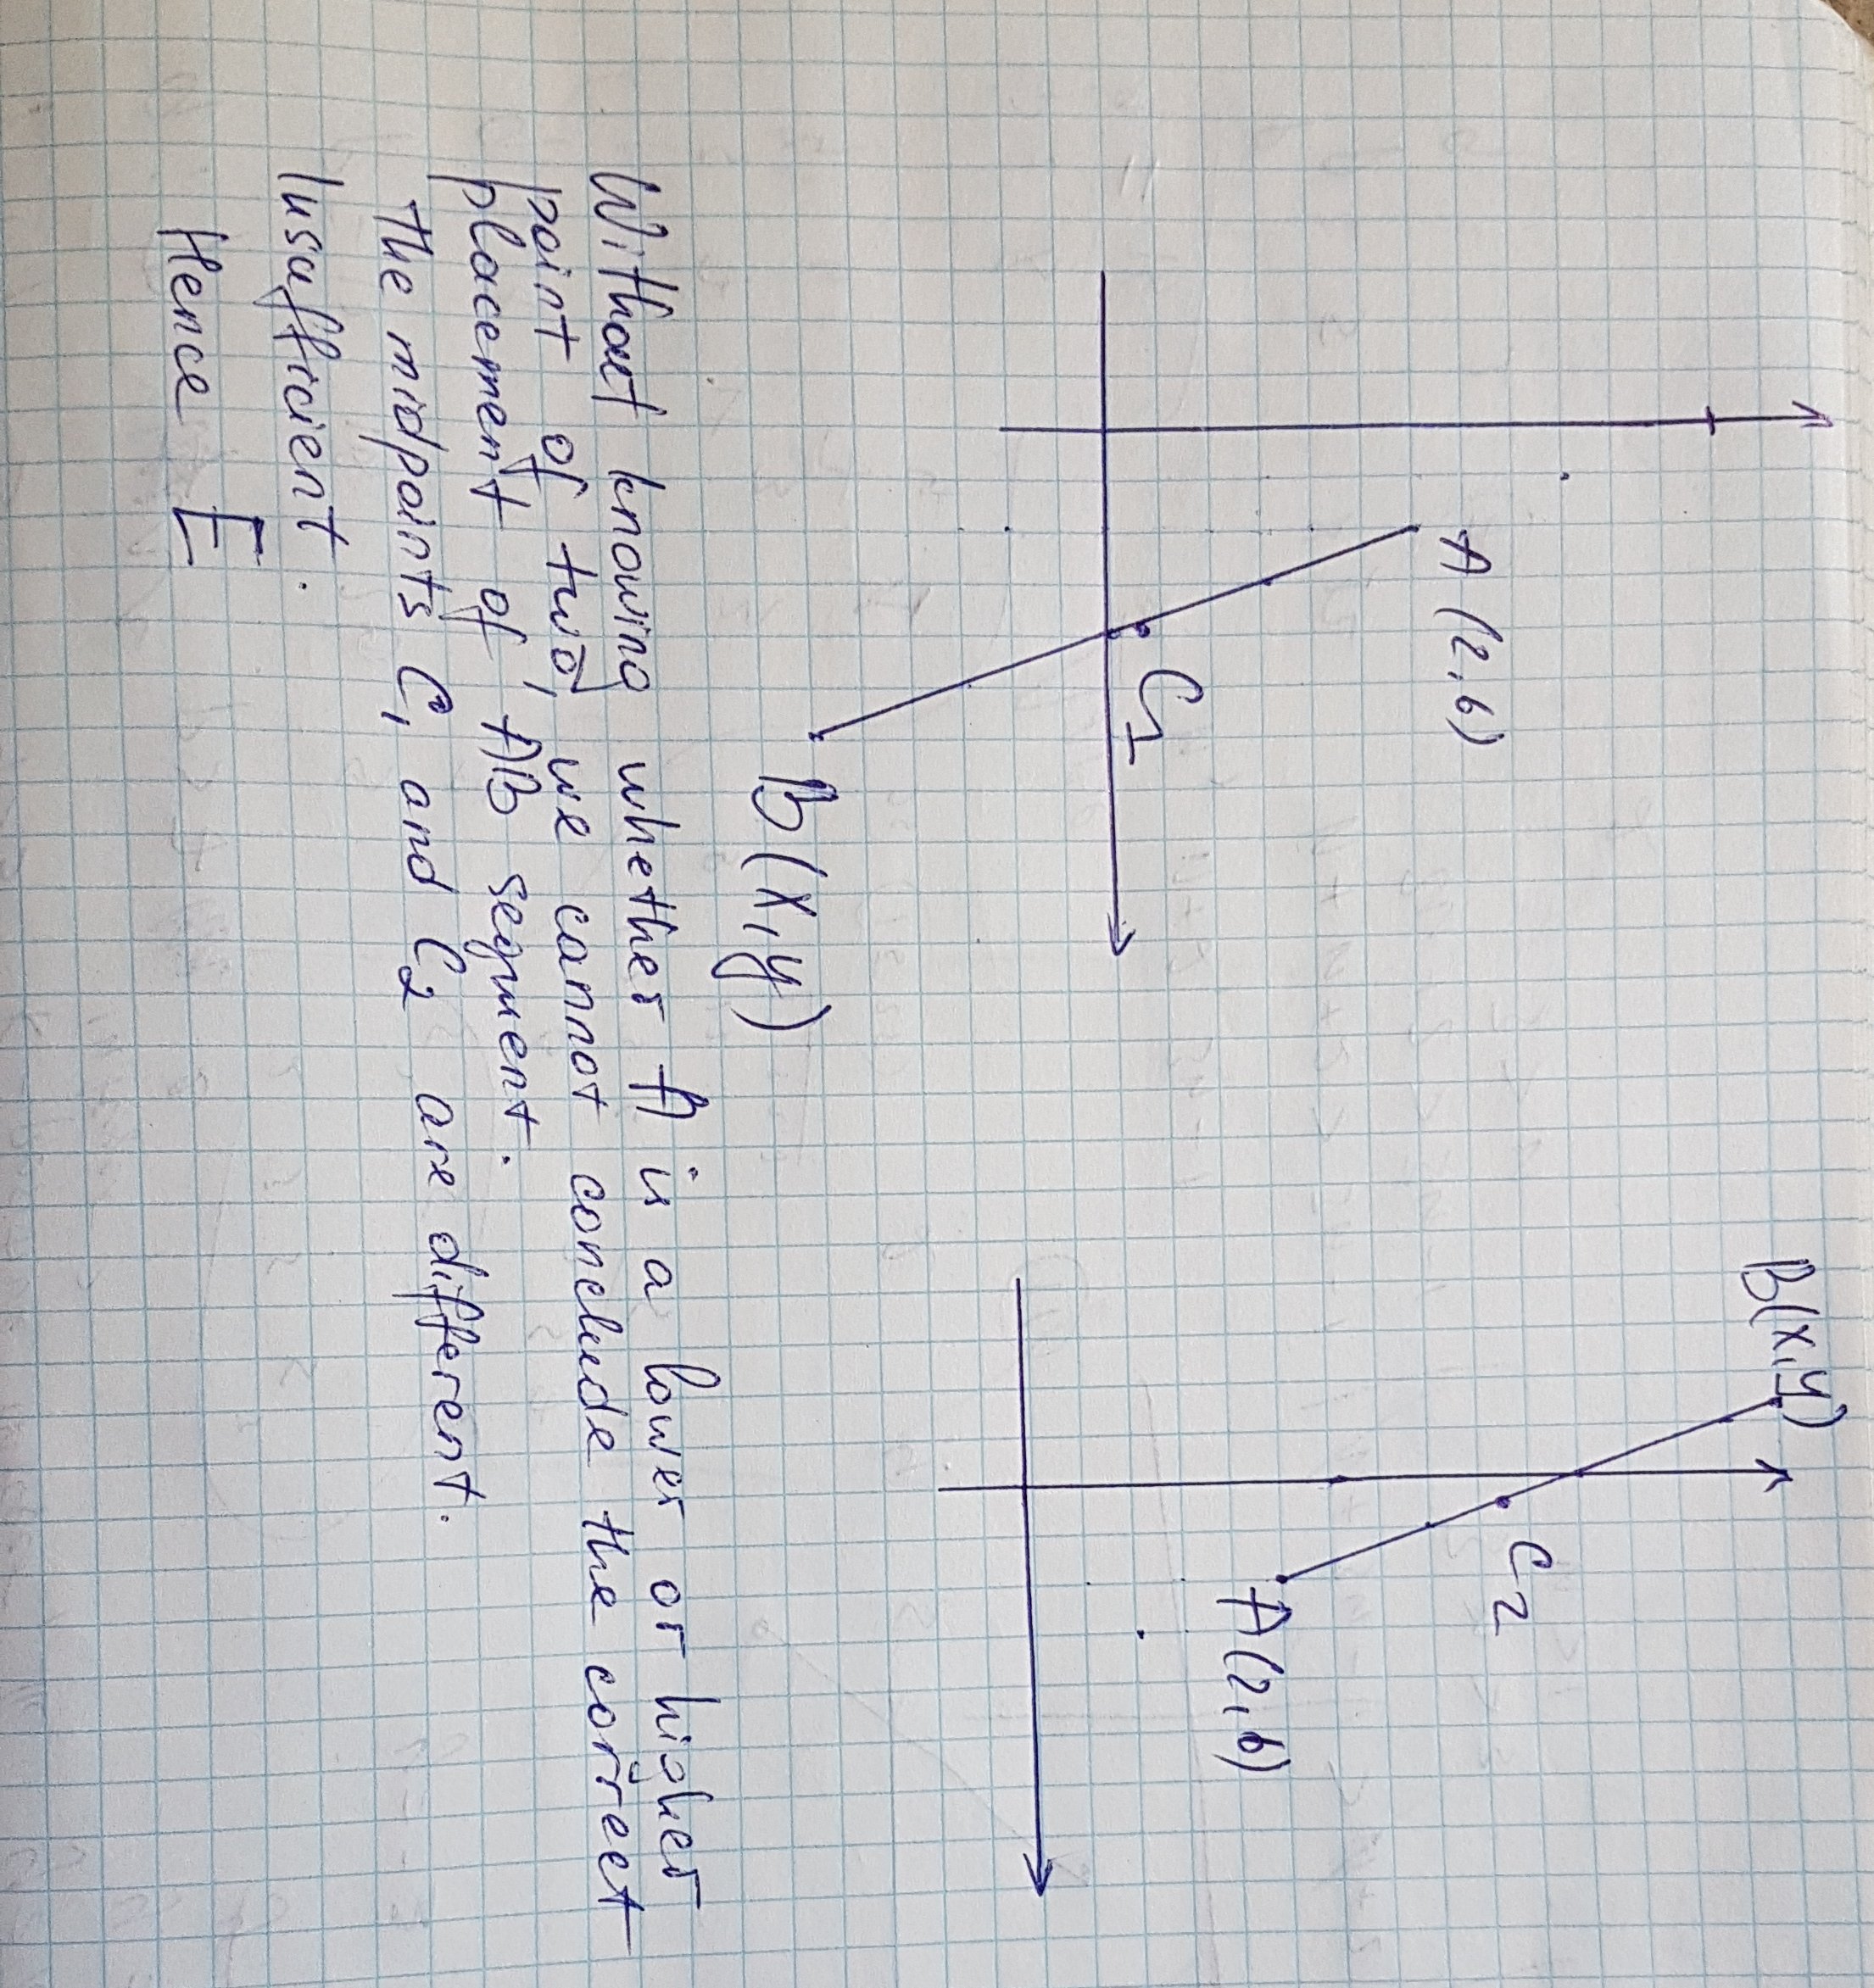 A (2,6)
C1
B (x,y)
B(x,y)
C2
A(2,6)
Without knowing whether A is a lower or higher
point of two, we cannot conclude the correct
placement of AB segment.
The midpoints C1 and C2 are different.
Insufficient.
Hence E